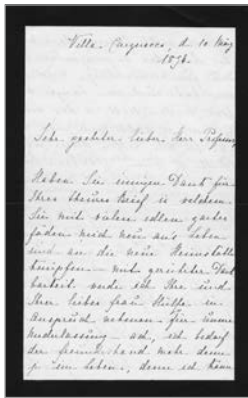 Villa , d. 10 März
189
Sehr geehrter lieber Herr Professor,
Haben Sie innigen Dank für
Ihren Brief in welchem
Sie mit vielen edlen zarten
fäden mich neu an's Leben
und an die neue Heimstätte
knüpfen – mit gerührter Dank
barkeit werde ich Ihre und
Ihrer lieben frau Hülfe in
Anspruch nehmen – für immer
Niederlassung – ach, ich bedarf
der freundeshand mehr denn
je im Leben, denn ich kann